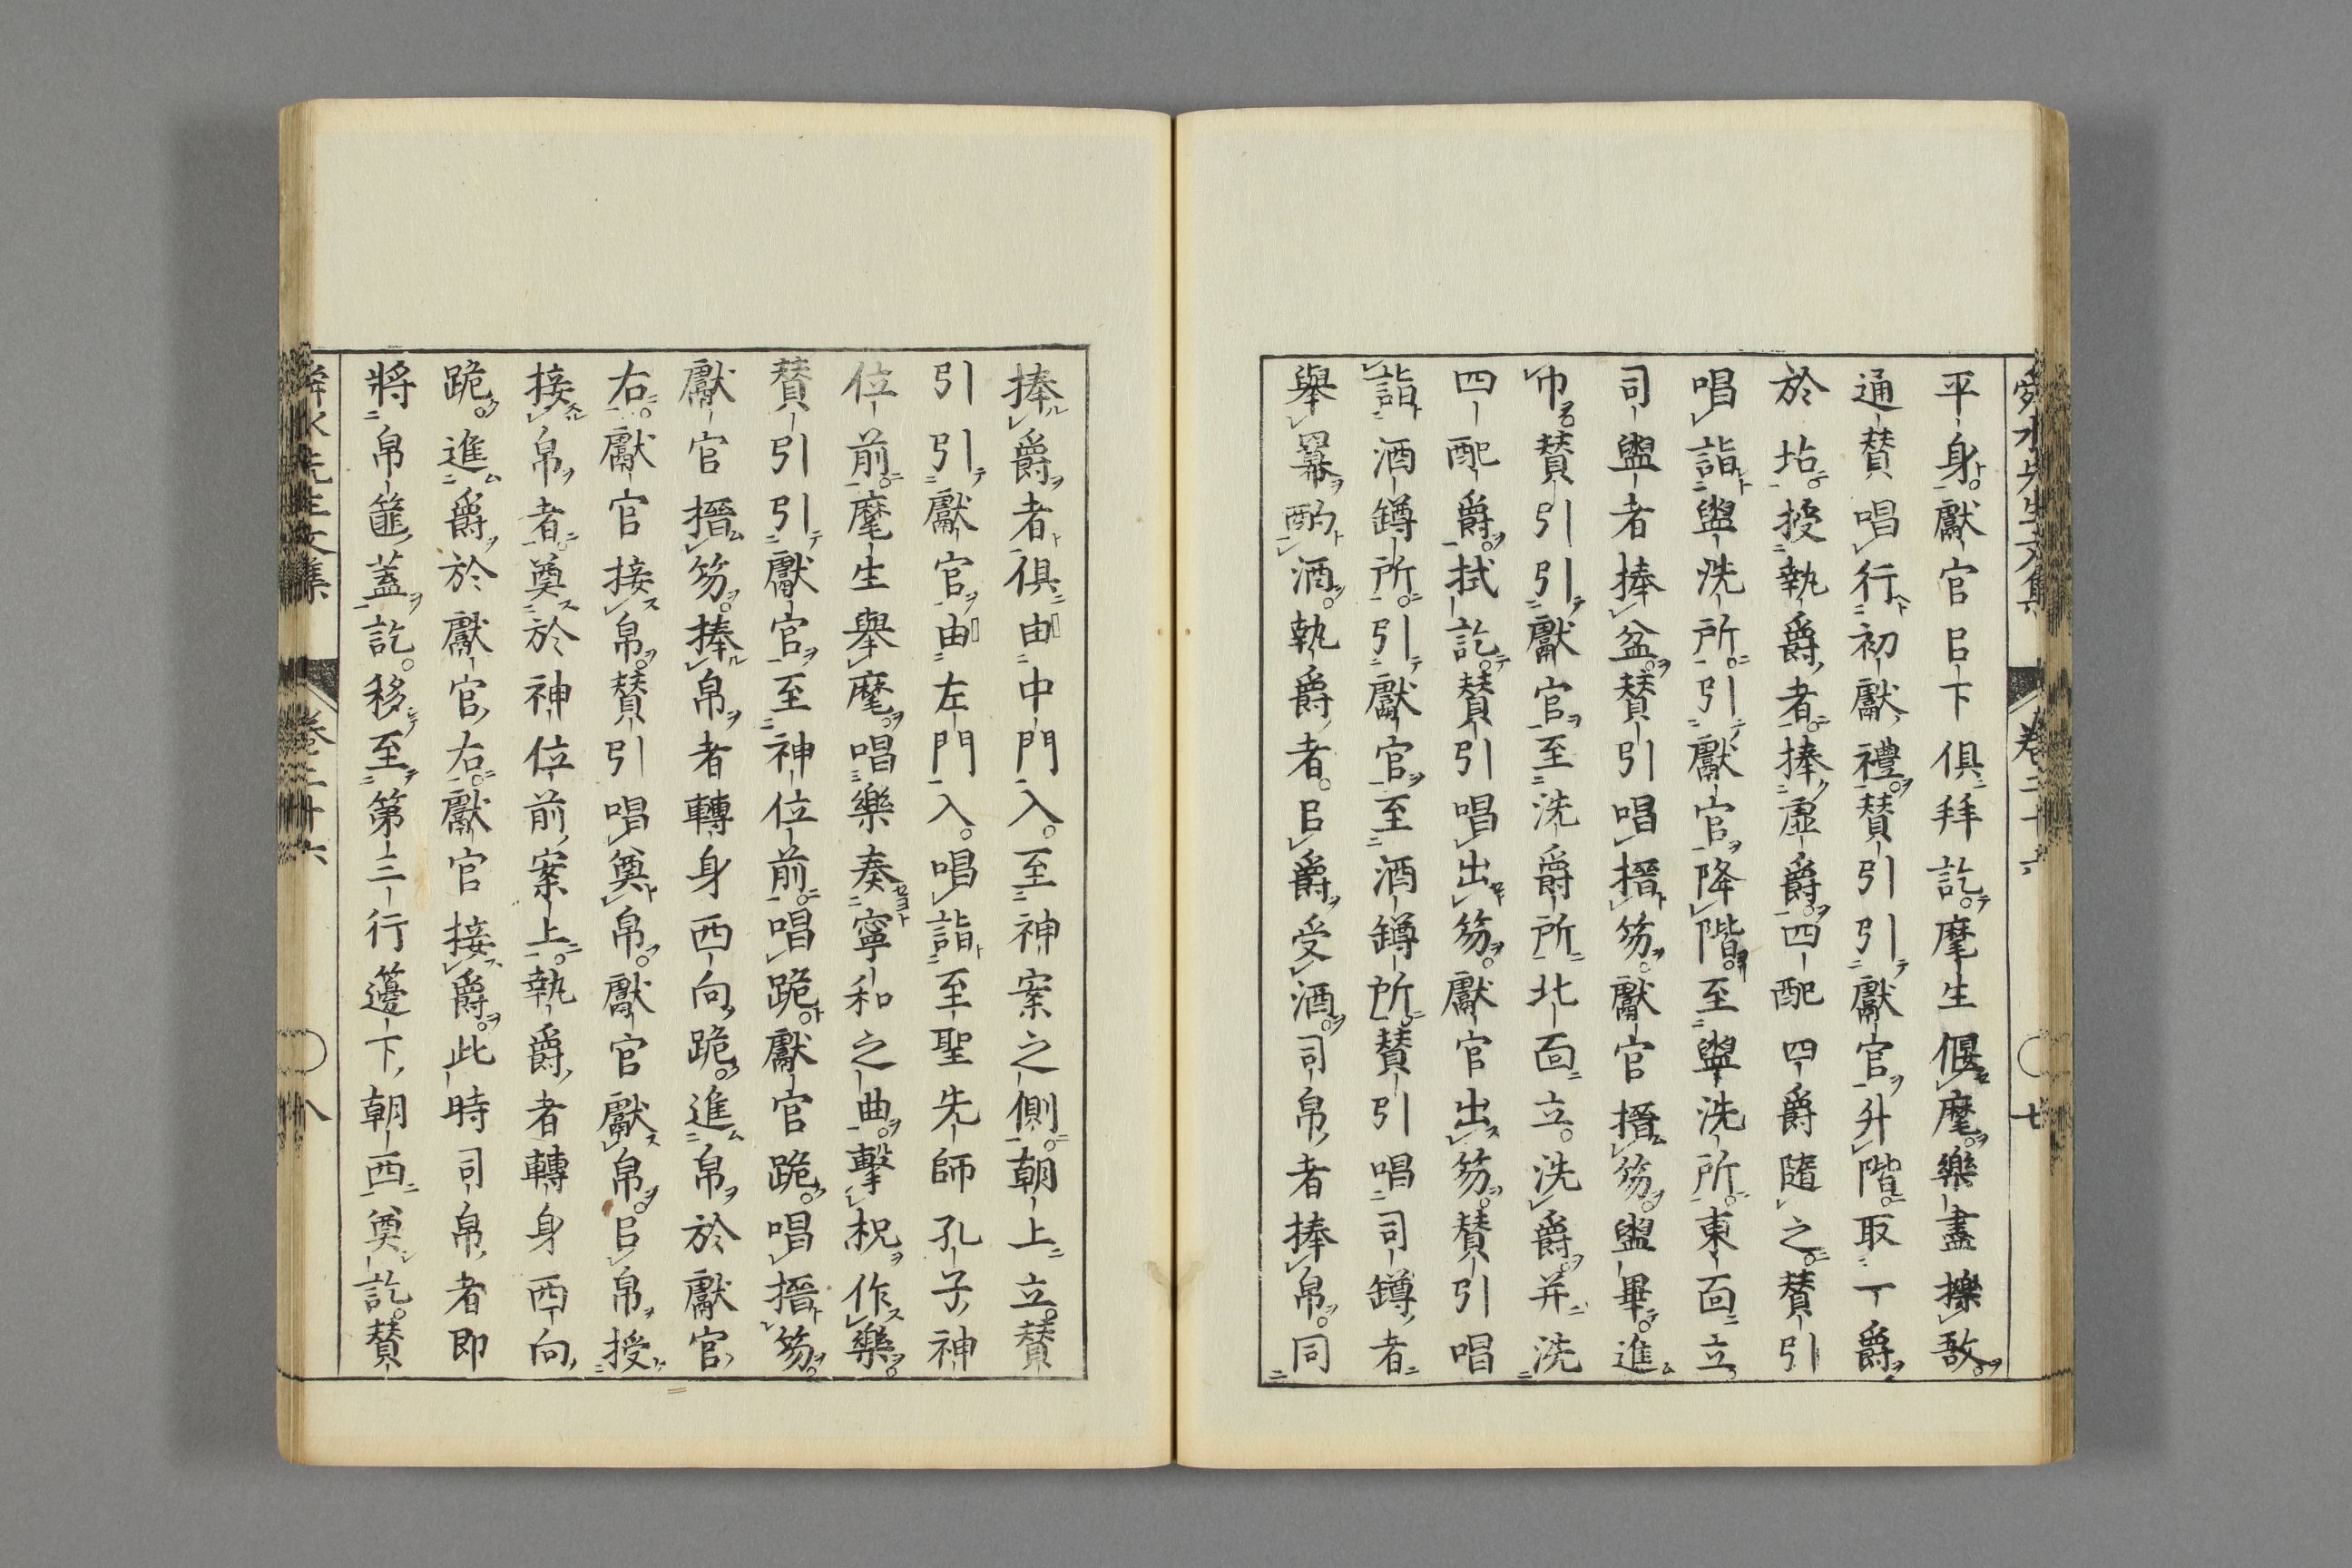 舜水先生文集 卷二十六 七
平身獻官㠯下俱拜訖麾生偃麾樂盡擽敔
通贊唱行初獻禮贊引引獻官升階取一爵
於坫授執爵者捧虛爵四配四爵隨之贊引
唱詣盥洗所引獻官降階至盥洗所東面立
司盥者捧盆贊引唱搢笏獻官搢笏盥畢進
巾贊引引獻官至洗爵所北面立洗爵并洗
四配爵拭訖贊引唱出笏獻官出笏贊引唱
詣酒罇所引獻官至酒罇所贊引唱司罇者
舉冪酌酒執爵者㠯爵受酒司帛者捧帛同
捧爵者俱由中門入至神案之側朝上立贊
引引獻官由左門入唱詣至聖先師孔子神
位前麾生舉麾唱樂奏寧和之曲擊柷作樂
贊引引獻官至神位前唱跪獻官跪唱搢笏
獻官搢笏捧帛者轉身西向跪進帛於獻官
右獻官接帛贊引唱奠帛獻官獻帛㠯帛授
接帛者奠於神位前案上執爵者轉身西向
跪進爵於獻官右獻官接爵此時司帛者即
將帛篚蓋訖移至第三行籩下朝西奠訖贊
舜水先生文集 卷二十六 八